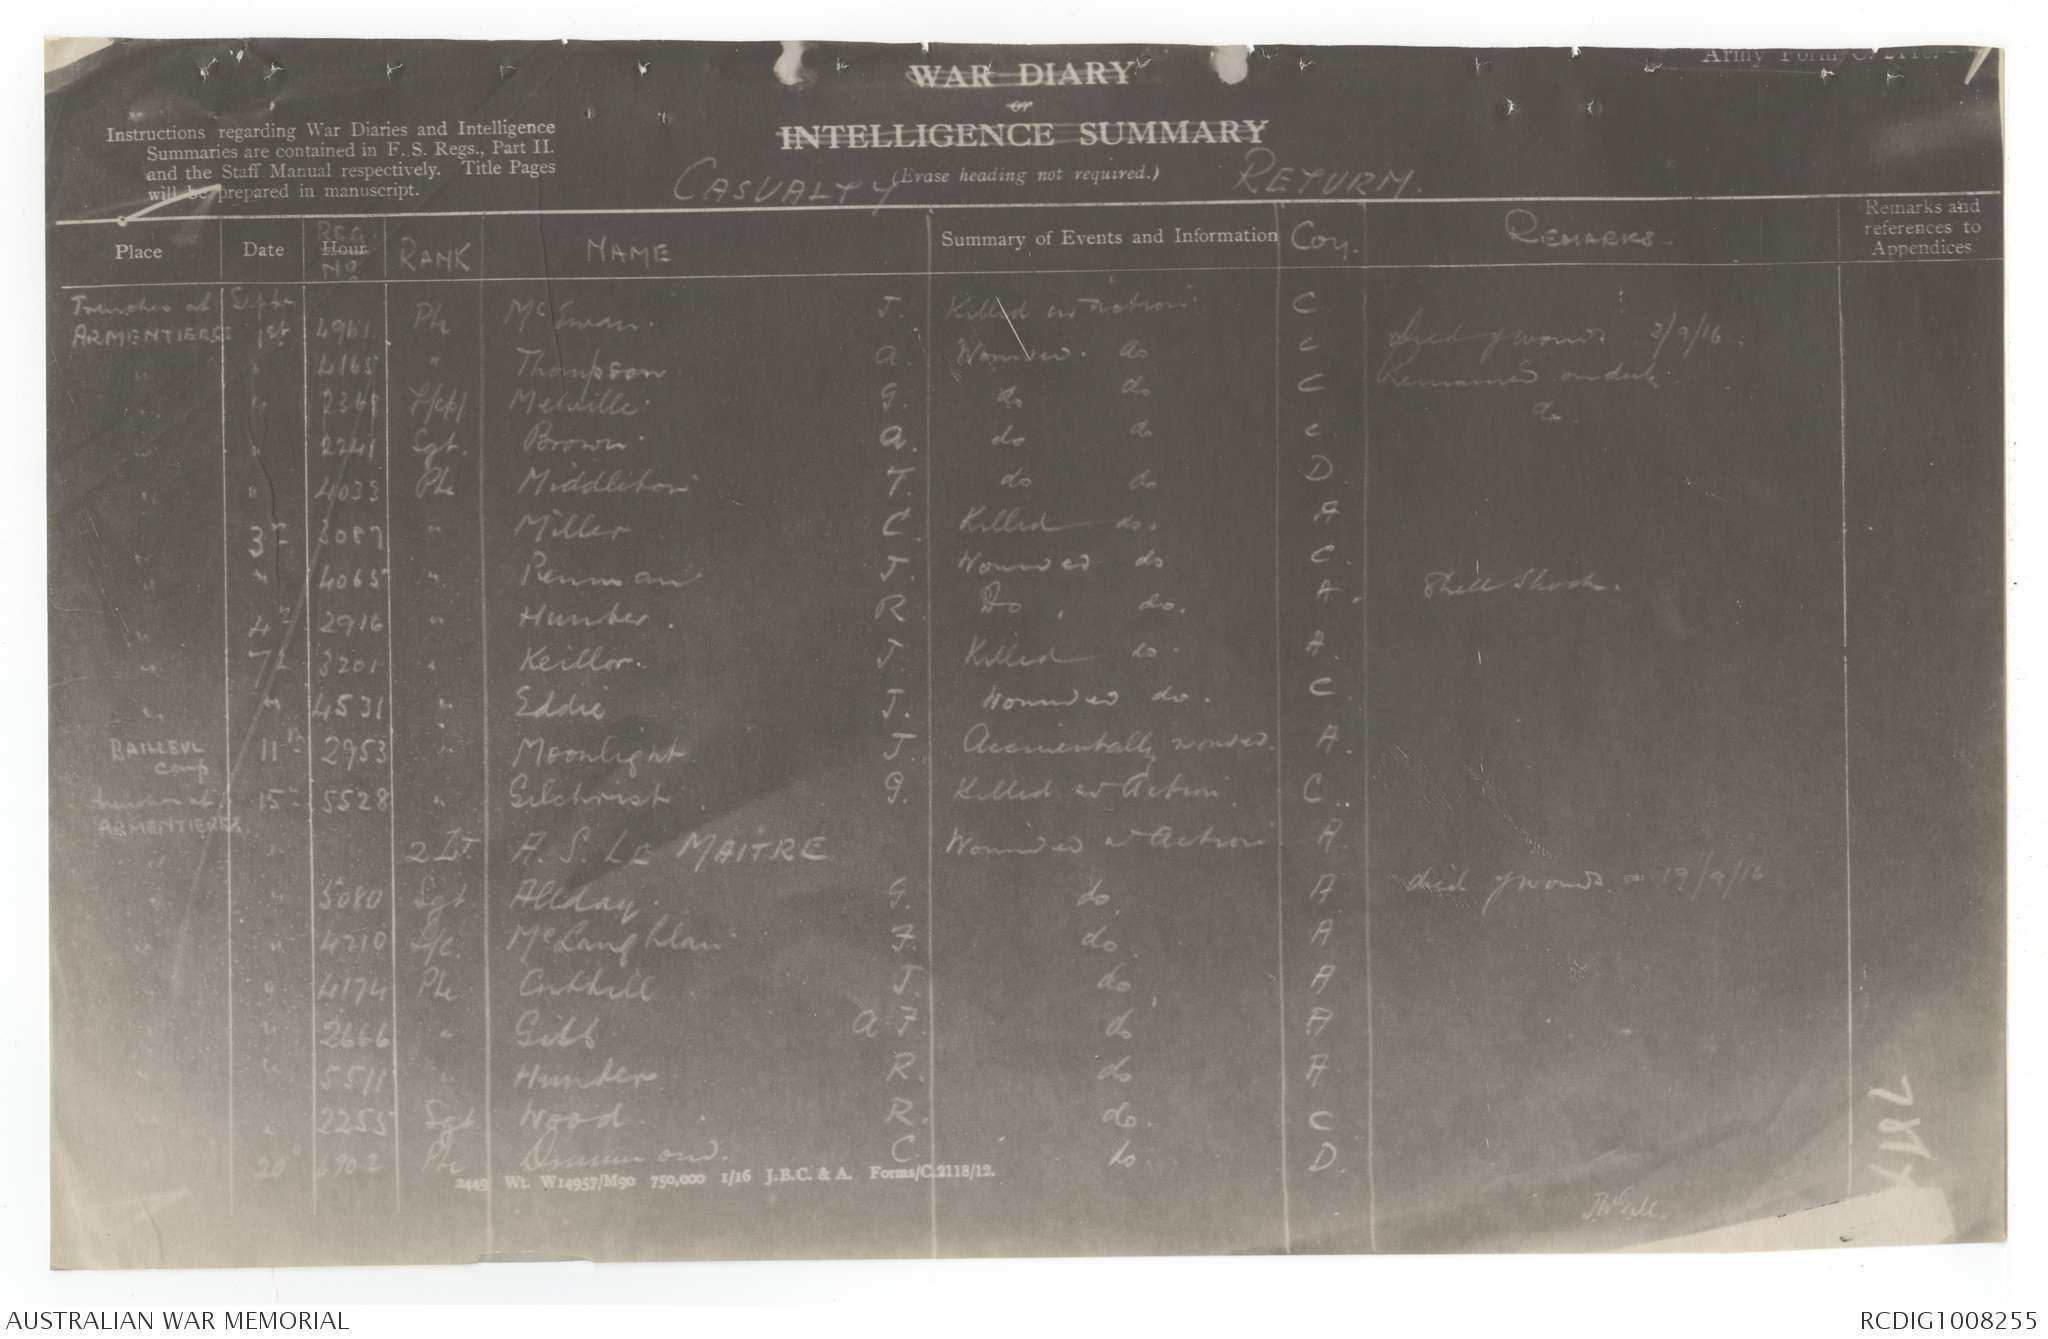 Army Form C. 2118.
WAR DIARY
or
INTELLIGENCE SUMMARY
(Erase heading not required.)
Instructions regarding War Diaries and Intelligence
Summaries are contained in F. S. Regs., Part II.
and the Staff Manual respectively. Title Pages
will be prepared in manuscript.
CASUALTY RETURN.
Place Date Hour REG. No. RANK NAME Summary of Events and Information Coy. REMARKS Remarks and references to Appendices
Trenches at ARMENTIERES Septr 1st 4961 Pte McEwan. J. Killed in Action C
" " 4165 " Thompson A. Wounded. do C died of wounds 2/9/16
" " L/Cpl Melville G. do do C remained on duty
" " 2241 Sgt. Brown. A. do do C do
" " 4033 Pte Middleton T. do do D.
" 3rd 3087 " Miller C. Killed do. A
" " 4065 " Penman J. Wounded do C.
" 4th 2916 " Hunter. R. Do. do. A. Shell Shock.
" 7th 3201 " Keillor. J. Killed do. A.
" " 4531 " Eddie J. Wounded do. C.
BAILLEUL camp 11th 2953 " Moonlight J. Accidentally wounded. A.
trenches at ARMENTIERES 15th 5528 " Gilchrist G. Killed in Action C.
" " 2 Lt. A. S. LE MAITRE Wounded in Action A.
" " 5080 Sgt Allday. G. do A died of wounds = 17/9/16
" " 4710 L/c. McLaughlan F. do. A
" " 4174 Pte Cuthill J. do A
" " 2666 " Gibb A F. do A
" " 5511 " Hunter R. do A
" " 2255 Sgt Wood R. do. C
" 20th 6902 Pte Drummond. C. do D.
2449 Wt. W14957/M90 750,000 1/16 J.B.C. & A. Forms/C.2118/12.
AUSTRALIAN WAR MEMORIAL
RCDIG1008255